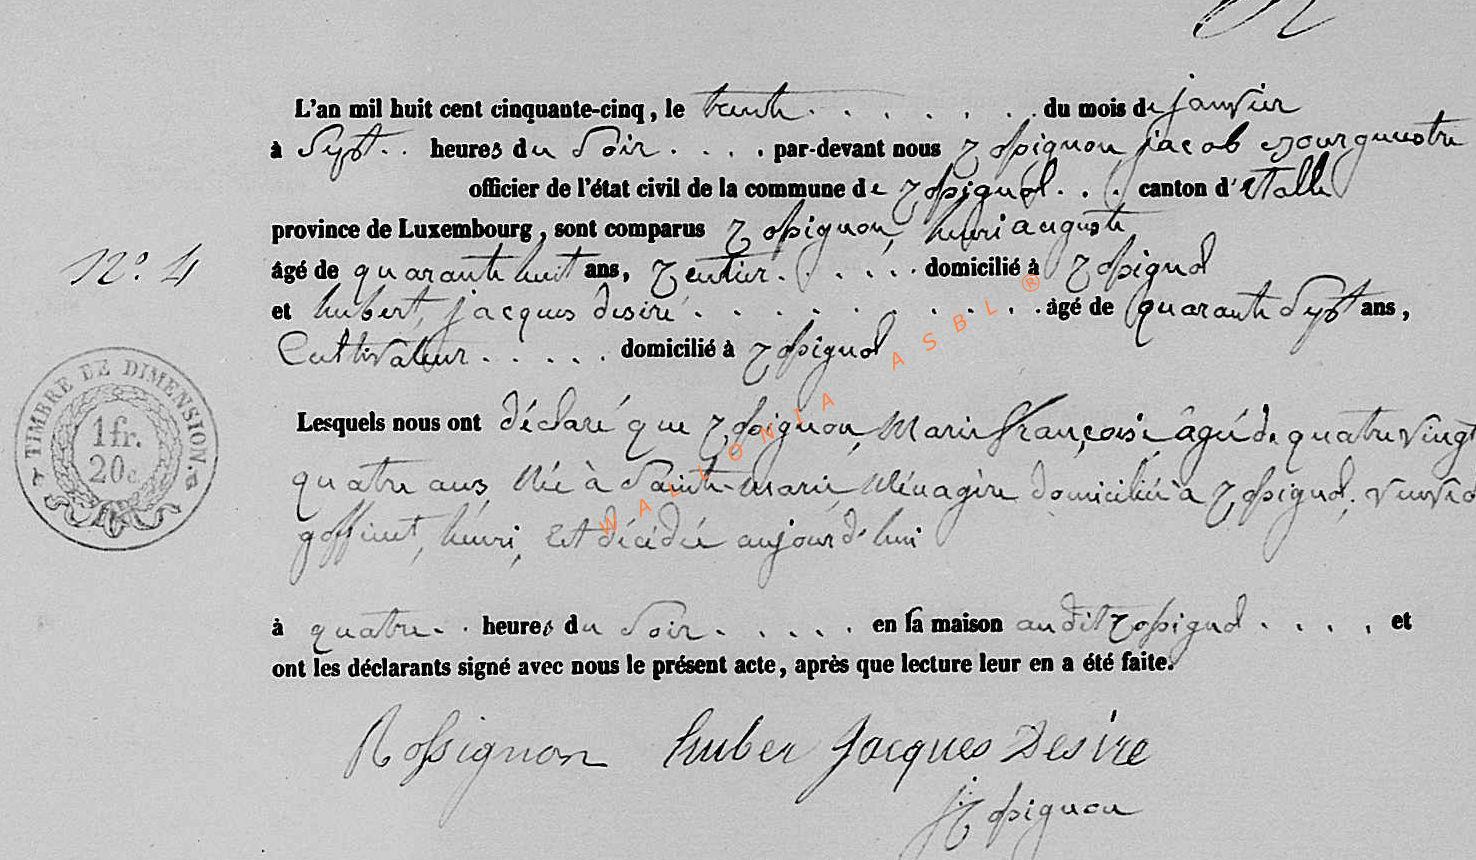 L'an mil huit cent cinquante-cinq, le trente . . . . . . . du mois de janvier
à Sept . . heures du Soir . . . . par-devant nous Rossignon jacob Bourguestre
officier de l'état civil de la commune de Rossignol . . . canton d'Etalle
province de Luxembourg, sont comparus Rossignon, henri auguste
âgé de quarante huit ans, Rentier . . . . . . domicilié à Rossignol
et hubert, jacques desiré . . . . . . . . . . âgé de quarante Sept ans,
Cultivateur . . . . . domicilié à Rossignol
N.º 4
TIMBRE DE DIMENSION.
1 fr.
20 c.
Lesquels nous ont déclaré que Rossignon, Marie françoise, âgée de quatre vingt
quatre ans, Née à Sainte-Marie, Ménagère domiciliée à Rossignol, veuve de
goffinet, henri, Est décédée aujourd'hui
à quatre . . heures du Soir . . . . . en sa maison audit Rossignol . . . . , et
ont les déclarants signé avec nous le présent acte, après que lecture leur en a été faite.
Rossignon huber Jacques Desire
J Rossignon
WALLONIA ASBL ®